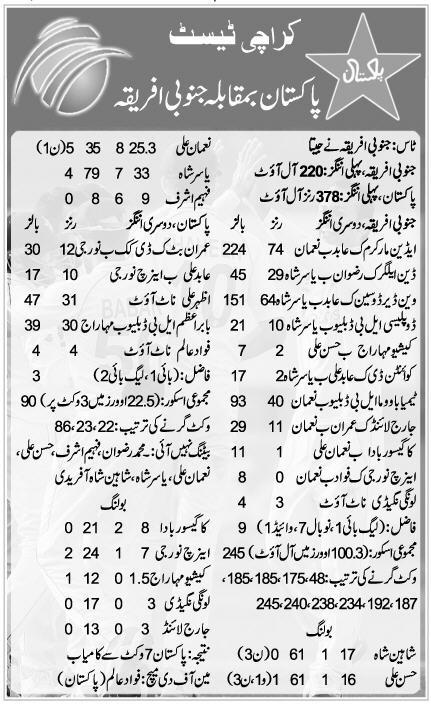 کراچی ٹیسٹ
پاکستان
پاکستان بمقابلہ جنوبی افریقہ
ٹاس: جنوبی افریقہ نے جیتا
جنوبی افریقہ، پہلی اننگز: 220 آل آؤٹ
پاکستان، پہلی اننگز: 378 رنز آل آؤٹ
جنوبی افریقہ، دوسری اننگز رنز بالز
ایڈین مارکرم ک عابد ب نعمان 74 224
ڈین ایلگر ک رضوان ب یاسر شاہ 29 45
وین ڈیر ڈوسین ک عابد ب یاسر شاہ 64 151
ڈوپلیسی ایل بی ڈبلیو ب یاسر شاہ 10 21
کیشیو مہاراج ب حسن علی 2 7
کوائنٹن ڈی ک عابد علی ب یاسر شاہ 2 17
ٹیمبا باووما ایل بی ڈبلیو ب نعمان 40 93
جارج لائنڈ ک عمران ب نعمان 11 29
کاگیسو ربادا ب نعمان علی 1 11
اینرچ نورجی ک فواد ب نعمان 0 8
لونگی نگیڈی ناٹ آؤٹ 3 4
فاضل: (لیگ بائی 1، نو بال 7، وائیڈ 1) 9
مجموعی اسکور: (100.3 اوورز میں آل آؤٹ) 245
وکٹ گرنے کی ترتیب: 48، 175، 185، 185،
187، 192، 234، 238، 240، 245
بولنگ
شاہین شاہ 17 1 61 0 (ن3)
حسن علی 16 1 61 1 (و1، ن3)
نعمان علی 25.3 8 35 5 (ن1)
یاسر شاہ 33 7 79 4
فہیم اشرف 9 6 8 0
پاکستان، دوسری اننگز رنز بالز
عمران بٹ ک ڈی کک ب نورجی 12 30
عابد علی ب اینرچ نورجی 10 17
اظہر علی ناٹ آؤٹ 31 47
بابر اعظم ایل بی ڈبلیو ب مہاراج 30 39
فواد عالم ناٹ آؤٹ 4 4
فاضل: (بائی 1، لیگ بائی 2) 3
مجموعی اسکور: (22.5 اوورز میں 3 وکٹ پر) 90
وکٹ گرنے کی ترتیب: 22، 23، 86
بیٹنگ نہیں آئی: ۔ محمد رضوان، فہیم اشرف، حسن علی،
نعمان علی، یاسر شاہ، شاہین شاہ آفریدی
بولنگ
کاگیسو ربادا 8 2 21 0
اینرچ نورجی 7 1 24 2
کیشیو مہاراج 1.5 0 12 1
لونگی نگیڈی 3 0 17 0
جارج لائنڈ 3 0 13 0
نتیجہ: پاکستان 7 وکٹ سے کامیاب
مین آف دی میچ: فواد عالم (پاکستان)